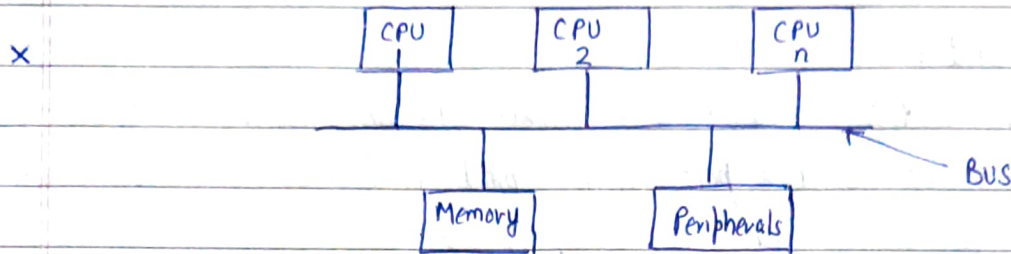 ×
CPU
1
CPU
2
CPU
n
BUS
Memory
Peripherals